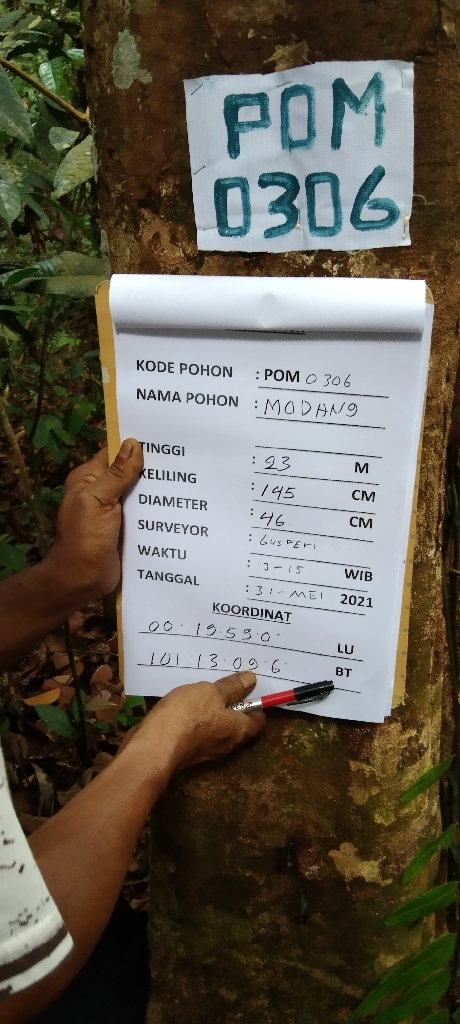 POM
0306
KODE POHON : POM 0306
NAMA POHON : MODANG
TINGGI : 23 M
KELILING : 145 CM
DIAMETER : 46 CM
SURVEYOR : GUSPERI
WAKTU : 13-15 WIB
TANGGAL : 31-MEI 2021
KOORDINAT
00.19.59.0. LU
101.13.09.6. BT